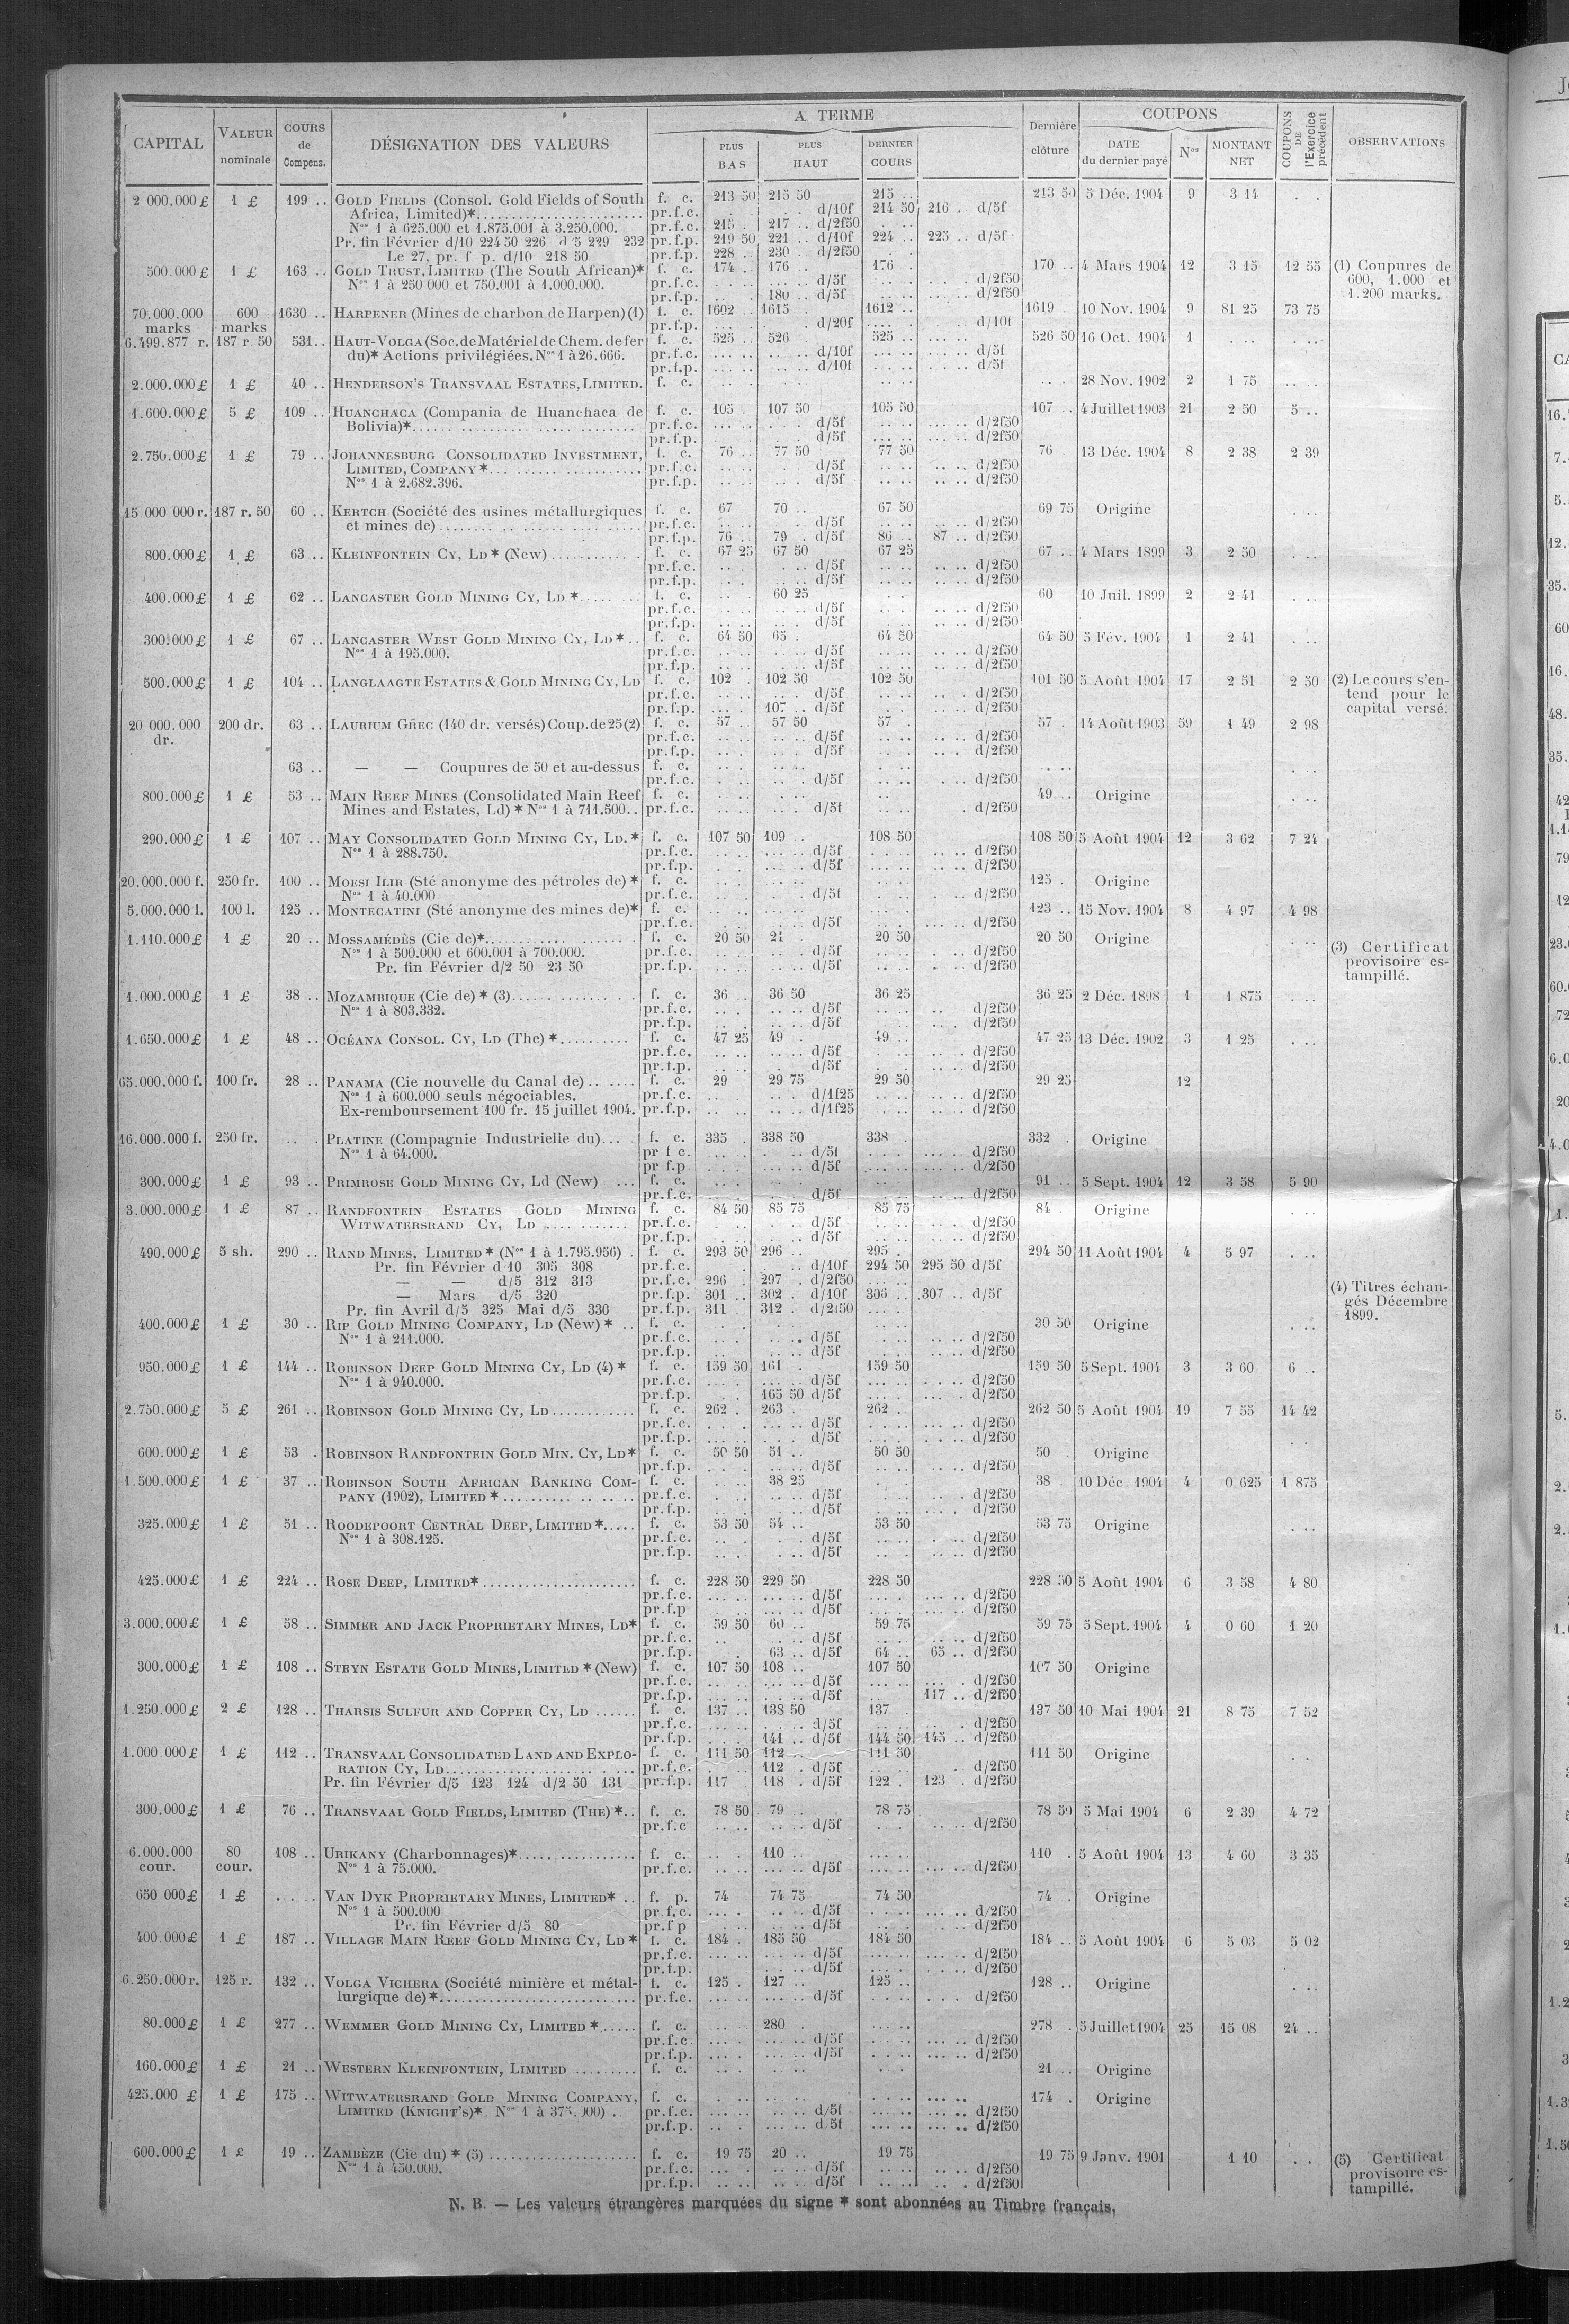 CAPITAL | VALEUR nominale | COURS de Compens. | DÉSIGNATION DES VALEURS | A TERME | PLUS BAS | PLUS HAUT | DERNIER COURS | Dernière clôture | COUPONS | DATE du dernier payé | Nos | MONTANT NET | COUPONS DE l'Exercice précédent | OBSERVATIONS
2 000.000 £ 1 £ 199 .. GOLD FIELDS (Consol. Gold Fields of South f. c. 213 50 215 50 215 .. 213 50 5 Déc. 1904 9 3 14
Africa, Limited)* pr.f.c. d/10f 214 50 216 .. d/5f
Nos 1 à 625.000 et 1.875.001 à 3.250.000. pr.f.c. 215 . 217 .. d/2f50
Pr. fin Février d/10 224 50 226 d 5 229 232 pr.f.p. 219 50 221 .. d/10f 224 .. 225 .. d/5f
Le 27, pr. f p. d/10 218 50 pr.f.p. 228 .. 230 . d/2f50
500.000 £ 1 £ 163 .. GOLD TRUST, LIMITED (The South African)* f. c. 174 . 176 . 176 . 170 .. 4 Mars 1904 12 3 15 12 55 (1) Coupures de
Nos 1 à 250 000 et 750.001 à 1.000.000. pr.f.c. d/5f d/2f50 600, 1.000 et
pr.f.p. 180 .. d/5f d/2f50 1.200 marks.
70.000.000 600 1630 .. HARPENER (Mines de charbon de Harpen) (1) f. c. 1602 .. 1615 . 1612 .. 1619 . 10 Nov. 1904 9 81 25 73 75
marks marks pr.f.p. d/20f d/10f
6.499.877 r. 187 r 50 531.. HAUT-VOLGA (Soc. de Matériel de Chem. de fer f. c. 525 .. 526 525 .. 526 50 16 Oct. 1904 1
du)* Actions privilégiées. Nos 1 à 26.666. pr.f.c. d/10f d/5f
pr.f.p. d/10f d/5f
2.000.000 £ 1 £ 40 .. HENDERSON'S TRANSVAAL ESTATES, LIMITED. f. c. 28 Nov. 1902 2 1 75
1.600.000 £ 5 £ 109 .. HUANCHACA (Compania de Huanchaca de f. c. 105 . 107 50 105 50 107 .. 4 Juillet 1903 21 2 50 5 ..
Bolivia)* pr.f.c. d/5f d/2f50
pr.f.p. d/5f d/2f50
2.750.000 £ 1 £ 79 .. JOHANNESBURG CONSOLIDATED INVESTMENT, f. c. 76 .. 77 50 77 50 76 . 13 Déc. 1904 8 2 38 2 39
LIMITED, COMPANY * pr.f.c. d/5f d/2f50
Nos 1 à 2.682.396. pr.f.p. d/5f d/2f50
15 000 000 r. 187 r. 50 60 .. KERTCH (Société des usines métallurgiques f. c. 67 70 .. 67 50 69 75 Origine
et mines de) pr.f.c. d/5f d/2f50
pr.f.p. 76 .. 79 . d/5f 86 .. 87 .. d/2f50
800.000 £ 1 £ 63 .. KLEINFONTEIN CY, LD * (New) f. c. 67 25 67 50 67 25 67 .. 4 Mars 1899 3 2 50
pr.f.c. d/5f d/2f50
pr.f.p. d/5f d/2f50
400.000 £ 1 £ 62 .. LANCASTER GOLD MINING CY, LD * f. c. 60 25 60 10 Juil. 1899 2 2 41
pr.f.c. d/5f d/2f50
pr.f.p. d/5f d/2f50
300.000 £ 1 £ 67 .. LANCASTER WEST GOLD MINING CY, LD * f. c. 64 50 65 . 64 50 64 50 5 Fév. 1904 1 2 41
Nos 1 à 195.000. pr.f.c. d/5f d/2f50
pr.f.p. d/5f d/2f50
500.000 £ 1 £ 104 .. LANGLAAGTE ESTATES & GOLD MINING CY, LD f. c. 102 . 102 50 102 50 101 50 5 Août 1904 17 2 51 2 50 (2) Le cours s'en-
pr.f.c. d/5f d/2f50 tend pour le
pr.f.p. 107 .. d/5f d/2f50 capital versé.
20 000.000 200 dr. 63 .. LAURIUM GREC (140 dr. versés) Coup. de 25 (2) f. c. 57 .. 57 50 57 . 57 . 14 Août 1903 59 1 49 2 98
dr. pr.f.c. d/5f d/2f50
pr.f.p. d/5f d/2f50
63 .. — — Coupures de 50 et au-dessus f. c.
pr.f.c. d/5f d/2f50
800.000 £ 1 £ 53 .. MAIN REEF MINES (Consolidated Main Reef f. c. 49 .. Origine
Mines and Estates, Ld) * Nos 1 à 711.500.. pr.f.c. d/5f d/2f50
290.000 £ 1 £ 107 .. MAY CONSOLIDATED GOLD MINING CY, LD. * f. c. 107 50 109 .. 108 50 108 50 5 Août 1904 12 3 62 7 24
Nos 1 à 288.750. pr.f.c. d/5f d/2f50
pr.f.p. d/5f d/2f50
20.000.000 f. 250 fr. 100 .. MOESI ILIR (Sté anonyme des pétroles de) * f. c. 125 . Origine
Nos 1 à 40.000 pr.f.c. d/5f d/2f50
5.000.000 l. 100 l. 125 .. MONTECATINI (Sté anonyme des mines de)* f. c. 123 .. 15 Nov. 1904 8 4 97 4 98
pr.f.c. d/5f d/2f50
1.110.000 £ 1 £ 20 .. MOSSAMÉDÈS (Cie de)* f. c. 20 50 21 . 20 50 20 50 Origine (3) Certificat
Nos 1 à 500.000 et 600.001 à 700.000. pr.f.c. d/5f d/2f50 provisoire es-
Pr. fin Février d/2 50 23 50 pr.f.p. d/5f d/2f50 tampillé.
1.000.000 £ 1 £ 38 .. MOZAMBIQUE (Cie de) * (3) f. c. 36 .. 36 50 36 25 36 25 2 Déc. 1898 1 1 875
Nos 1 à 803.332. pr.f.c. d/5f d/2f50
pr.f.p. d/5f d/2f50
1.650.000 £ 1 £ 48 .. OCÉANA CONSOL. CY, LD (The) * f. c. 47 25 49 . 49 .. 47 25 13 Déc. 1902 3 1 25
pr.f.c. d/5f d/2f50
pr.f.p. d/5f d/2f50
65.000.000 f. 100 fr. 28 .. PANAMA (Cie nouvelle du Canal de) f. c. 29 29 75 29 50 29 25 12
Nos 1 à 600.000 seuls négociables. pr.f.c. d/1f25 d/2f50
Ex-remboursement 100 fr. 15 juillet 1904. pr.f.p. d/1f25 d/2f50
16.000.000 f. 250 fr. PLATINE (Compagnie Industrielle du) f. c. 335 . 338 50 338 . 332 . Origine
Nos 1 à 64.000. pr f c. d/5f d/2f50
pr f.p d/5f d/2f50
300.000 £ 1 £ 93 .. PRIMROSE GOLD MINING CY, Ld (New) f. c. 91 .. 5 Sept. 1904 12 3 58 5 90
pr.f.c. d/5f d/2f50
3.000.000 £ 1 £ 87 .. RANDFONTEIN ESTATES GOLD MINING f. c. 84 50 85 75 85 75 84 Origine
WITWATERSRAND CY, LD pr.f.c. d/5f d/2f50
pr.f.p. d/5f d/2f50
490.000 £ 5 sh. 290 .. RAND MINES, LIMITED * (Nos 1 à 1.795.956) f. c. 293 50 296 .. 295 . 294 50 11 Août 1904 4 5 97
Pr. fin Février d 10 305 308 pr.f.c. d/10f 294 50 295 50 d/5f
— — d/5 312 313 pr.f.c. 296 . 297 . d/2f50 (4) Titres échan-
— Mars d/5 320 pr.f.p. 301 .. 302 . d/10f 306 .. 307 .. d/5f gés Décembre
Pr. fin Avril d/5 325 Mai d/5 330 pr.f.p. 311 312 . d/2f50 1899.
400.000 £ 1 £ 30 .. RIP GOLD MINING COMPANY, LD (New) * f. c. 30 50 Origine
Nos 1 à 211.000. pr.f.c. d/5f d/2f50
pr.f.p. d/5f d/2f50
950.000 £ 1 £ 144 .. ROBINSON DEEP GOLD MINING CY, LD (4) * f. c. 159 50 161 . 159 50 159 50 5 Sept. 1904 3 3 60 6 ..
Nos 1 à 940.000. pr.f.c. d/5f d/2f50
pr.f.p. 165 50 d/5f d/2f50
2.750.000 £ 5 £ 261 .. ROBINSON GOLD MINING CY, LD f. c. 262 . 263 . 262 .. 262 50 5 Août 1904 19 7 55 14 42
pr.f.c. d/5f d/2f50
pr.f.p. d/5f d/2f50
600.000 £ 1 £ 53 . ROBINSON RANDFONTEIN GOLD MIN. CY, LD* f. c. 50 50 51 .. 50 50 50 . Origine
pr.f.p. d/5f d/2f50
1.500.000 £ 1 £ 37 .. ROBINSON SOUTH AFRICAN BANKING COM- f. c. 38 25 38 . 10 Déc. 1904 4 0 625 1 875
PANY (1902), LIMITED * pr.f.c. d/5f d/2f50
pr.f.p. d/5f d/2f50
325.000 £ 1 £ 51 .. ROODEPOORT CENTRAL DEEP, LIMITED * f. c. 53 50 54 .. 53 50 53 75 Origine
Nos 1 à 308.125. pr.f.c. d/5f d/2f50
pr.f.p. d/5f d/2f50
425.000 £ 1 £ 224 .. ROSE DEEP, LIMITED* f. c. 228 50 229 50 228 50 228 50 5 Août 1904 6 3 58 4 80
pr.f.c. d/5f d/2f50
pr.f.p d/5f d/2f50
3.000.000 £ 1 £ 58 .. SIMMER AND JACK PROPRIETARY MINES, LD* f. c. 59 50 60 .. 59 75 59 75 5 Sept. 1904 4 0 60 1 20
pr.f.c. d/5f d/2f50
pr.f.p. 63 .. d/5f 64 .. 65 .. d/2f50
300.000 £ 1 £ 108 .. STEYN ESTATE GOLD MINES, LIMITED * (New) f. c. 107 50 108 .. 107 50 107 50 Origine
pr.f.c. d/5f d/2f50
pr.f.p. d/5f 117 .. d/2f50
1.250.000 £ 2 £ 128 .. THARSIS SULFUR AND COPPER CY, LD f. c. 137 .. 138 50 137 . 137 50 10 Mai 1904 21 8 75 7 52
pr.f.c. d/5f d/2f50
pr.f.p. 141 .. d/5f 144 50 145 .. d/2f50
1.000 000 £ 1 £ 112 .. TRANSVAAL CONSOLIDATED LAND AND EXPLO- f. c. 111 50 112 .. 111 50 111 50 Origine
RATION CY, LD pr.f.c. 112 . d/5f d/2f50
Pr. fin Février d/5 123 124 d/2 50 131 pr.f.p 117 118 . d/5f 122 . 123 . d/2f50
300.000 £ 1 £ 76 .. TRANSVAAL GOLD FIELDS, LIMITED (THE) * f. c. 78 50 79 . 78 75 78 50 5 Mai 1904 6 2 39 4 72
pr.f.c d/5f d/2f50
6.000.000 80 108 .. URIKANY (Charbonnages)* f. c. 110 .. 110 . 5 Août 1904 13 4 60 3 35
cour. cour. Nos 1 à 75.000. pr.f.c. d/5f d/2f50
650 000 £ 1 £ VAN DYK PROPRIETARY MINES, LIMITED* f. p. 74 74 75 74 50 74 . Origine
Nos 1 à 500.000 pr f.c. d/5f d/2f50
Pr. fin Février d/5 80 pr.f p d/5f d/2f50
400.000 £ 1 £ 187 .. VILLAGE MAIN REEF GOLD MINING CY, LD * f. c. 184 . 185 50 184 50 184 .. 5 Août 1904 6 5 03 5 02
pr.f.c. d/5f d/2f50
pr.f.p. d/5f d/2f50
6.250.000 r. 125 r. 132 .. VOLGA VICHERA (Société minière et métal- f. c. 125 . 127 .. 125 .. 128 .. Origine
lurgique de) * pr.f.c. d/5f d/2f50
80.000 £ 1 £ 277 .. WEMMER GOLD MINING CY, LIMITED * f. c. 280 . 278 . 5 Juillet 1904 25 15 08 24 ..
pr.f.c d/5f d/2f50
pr.f.p. d/5f d/2f50
160.000 £ 1 £ 21 .. WESTERN KLEINFONTEIN, LIMITED f. c. 21 .. Origine
425.000 £ 1 £ 175 .. WITWATERSRAND GOLD MINING COMPANY, f. c. 174 . Origine
LIMITED (KNIGHT'S)* Nos 1 à pr.f.c. d/5f d/2f50
pr.f.p. d 5f d/2f50
600.000 £ 1 £ 19 .. ZAMBÈZE (Cie du) * (5) f. c. 19 75 20 .. 19 75 19 75 9 Janv. 1901 1 10 (5) Certificat
Nos 1 à 450.000. pr.f.c. d/5f d/2f50 provisoire es-
pr.f.p. d/5f d/2f50 tampillé.
N. B. — Les valeurs étrangères marquées du signe * sont abonnées au Timbre français.